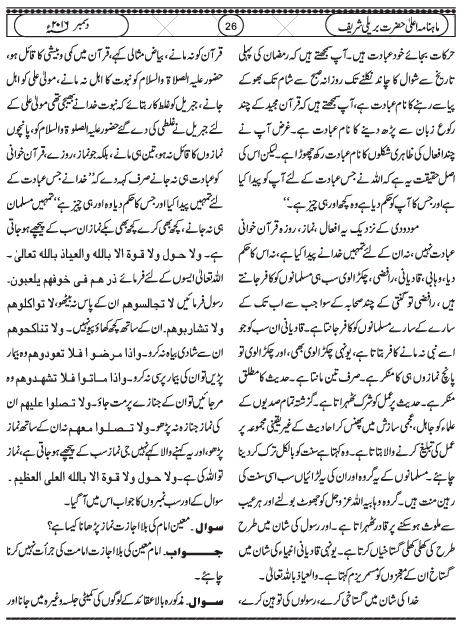 ماہنامہ اعلیٰ حضرت بریلی شریف
26
دسمبر ۲۰۱۶ء
حرکات بجائے خود عبادت ہیں۔ آپ سمجھتے ہیں کہ رمضان کی پہلی
تاریخ سے شوال کا چاند نکلنے تک روزانہ صبح سے شام تک بھوکے
پیاسے رہنے کا نام عبادت ہے، آپ سمجھتے ہیں کہ قرآن مجید کے چند
رکوع زبان سے پڑھ دینے کا نام عبادت ہے۔ غرض آپ نے
چند افعال کی ظاہری شکلوں کا نام عبادت رکھ چھوڑا ہے۔ لیکن اس کی
اصل حقیقت یہ ہے کہ اللہ نے جس عبادت کے لئے آپ کو پیدا کیا
ہے اور جس کا آپ کو حکم دیا ہے وہ کچھ اور ہی چیز ہے۔‘‘
مودودی کے نزدیک یہ افعال، نماز، روزہ قرآن خوانی
عبادت نہیں، نہ ان کے لئے تمہیں خدا نے پیدا کیا ہے، نہ اس کا حکم
دیا، وہابی، قادیانی، رافضی، چکڑالوی سب ہی مسلمانوں کو کافر جانتے
ہیں، رافضی تو گنتی کے چند صحابہ کے سوا جب سے اب تک کے
سارے کے سارے مسلمانوں کو کافر جانتا ہے۔ قادیانی ان سب کو جو
اسے نبی نہ مانے کافر بتاتا ہے، یونہی چکڑالوی بھی، اور چکڑالوی تو
پانچ نمازوں ہی کا منکر ہے۔ صرف تین مانتا ہے۔ حدیث کا مطلق
منکر ہے۔ حدیث پر عمل کو شرک ٹھہراتا ہے۔ گزشتہ تمام صدیوں کے
علماء کو جاہل، عجمی سازش میں پھنس کر احادیث کے غیر یقینی مجموعہ پر
عمل کی تبلیغ کرنے والا بتاتا ہے۔ وہ کہتا ہے سنت کو بالکل ترک کر دینا
چاہئے۔ مسلمانوں کے یہ گروہ اور ان کی یہ لڑائیاں سب اسی سنت کی
رہین منت ہیں۔ گروہ وہابیہ اللہ عزوجل کو جھوٹ بولنے اور ہر عیب
سے ملوث ہو سکنے پر قادر ٹھہراتا ہے۔ اور رسول کی شان میں طرح
طرح کی کھلی کھلی گستاخیاں کرتا ہے۔ یونہی قادیانی انبیاء کی شان میں
گستاخ ان کے معجزوں کو مسمریزم کہتا ہے۔ والعیاذ باللہ تعالیٰ۔
خدا کی شان میں گستاخی کرے، رسولوں کی توہین کرے،
قرآن کو نہ مانے، بیاض عثمانی کہے، قرآن میں کمی وبیشی کا قائل ہو،
حضور علیہ الصلاۃ والسلام کو نبوت کا اہل نہ مانے، مولیٰ علی کو اہل
جانے، جبریل کو غلط کار بتائے کہ نبوت خدا نے بھیجی تھی مولیٰ علی کے
لئے جبریل کو غلطی کی دے گئے حضور علیہ الصلوۃ والسلام کو، پانچوں
نمازوں کا قائل نہ ہو، تین ہی مانے، بلکہ جو نماز، روزے، قرآن خوانی
کو عبادت ہی نہ جانے صرف کہہ دے کہ ’’خدا نے جس عبادت کے
لئے تمہیں پیدا کیا اور جس کا حکم دیا وہ اور ہی چیز ہے‘‘ تمہیں مسلمان
ہی نہ جانے، کچھ بھی کرے کچھ بھی بکے نماز ان سب کے پیچھے ہو جاتی
ہے۔ ولا حول ولا قوة الا بالله والعياذ بالله تعالیٰ۔
اللہ تعالیٰ ایسوں کے لئے فرمائے ذر هم فی خوفهم یلعبون۔
رسول فرمائیں لا تجالسوهم ان کے پاس نہ بیٹھو، لا تواکلوهم
ولا تشاربوهم۔ ان کے ساتھ کچھ کھاؤ پیو نہیں۔ ولا تناکحوهم
ان سے شادی بیاہ نہ کرو۔ واذا مرضوا فلا تعودوهم وہ بیمار
پڑیں تو ان کی بیمار پرسی نہ کرو۔ واذا ماتوا فلا تشهدوهم وہ
مر جائیں تو ان کے جنازے پر مت جاؤ۔ ولا تصلوا علیهم ان
کی نماز جنازہ نہ پڑھو۔ ولا تصلوا معهم نہ ان کے ساتھ نماز
پڑھو، اور یہ کہنے والا کہے نہیں جی نماز سب کے پیچھے ہو جاتی ہے، نماز
تو اللہ کی ہے۔ ولا حول ولا قوة الا بالله العلی العظیم۔
سوال کے اور سب نمبروں کا جواب اس میں آ گیا۔
سوال۔ معین امام کی بلا اجازت نماز پڑھانا کیسا ہے؟
جواب۔ امام معین کی بلا اجازت امامت کی جرأت نہیں کرنا
چاہئے۔
سوال۔ مذکورہ بالا عقائد کے لوگوں کی کمیٹی جلسہ وغیرہ میں جانا اور